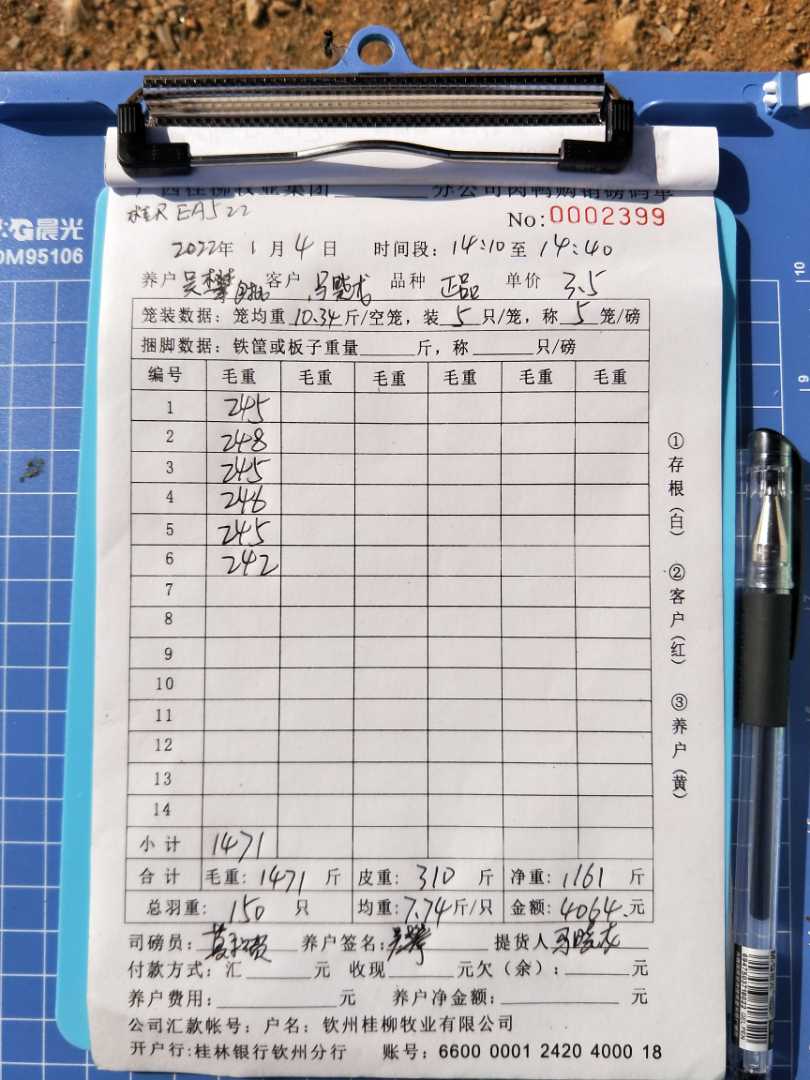 广西桂柳牧业集团______分公司肉鸭购销磅码单
EA522
No:0002399
2022年 1 月 4 日 时间段: 14:10 至 14:40
养户 吴 客户 马晓龙 品种 正品 单价 3.5
笼装数据: 笼均重 10.34 斤/空笼, 装 5 只/笼, 称 5 笼/磅
捆脚数据: 铁筐或板子重量______斤, 称______只/磅
编号 毛重 毛重 毛重 毛重 毛重 毛重
1 245
2 248
3 245
4 246
5 245
6 242
7
8
9
10
11
12
13
14
小计 1471
合计 毛重: 1471 斤 皮重: 310 斤 净重: 1161 斤
总羽重: 150 只 均重: 7.74 斤/只 金额: 4064 元
司磅员: 养户签名: 吴 提货人 马晓龙
付款方式: 汇______元 收现______元欠(余): ______元
养户费用: ______元 养户净金额: ______元
公司汇款帐号: 户名: 钦州桂柳牧业有限公司
开户行: 桂林银行钦州分行 账号: 6600 0001 2420 4000 18
①存根(白) ②客户(红) ③养户(黄)
M&G晨光
DM95106
10
9